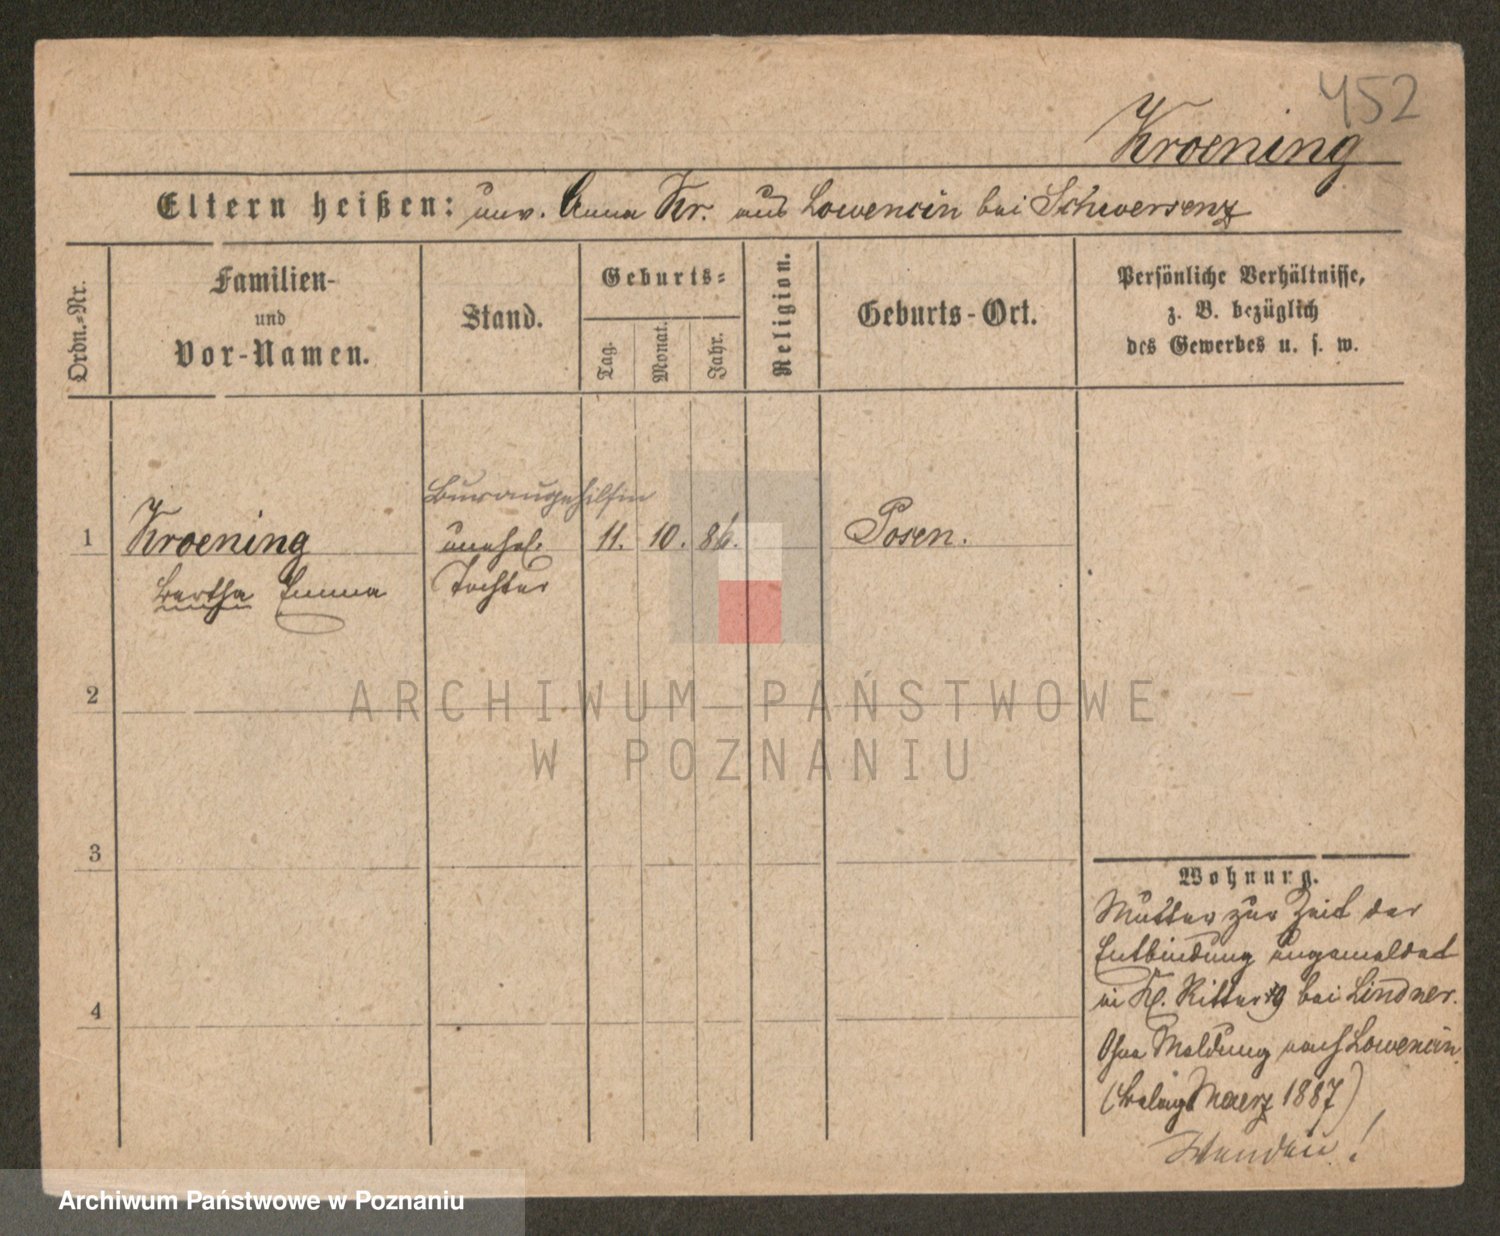 452
Kroening
Eltern heißen: unv. Anna Kr. aus Lowencin bei Schwersenz
Ordn.-Nr.
Familien-
und
Vor-Namen.
Stand.
Geburts-
Tag.
Monat.
Jahr.
Religion.
Geburts-Ort.
Persönliche Verhältnisse,
z. B. bezüglich
des Gewerbes u. s. w.
Bureaugehilfin
1 Kroening unehel. 11. 10. 86. Posen.
Bertha Emma Tochter
2
ARCHIWUM PAŃSTWOWE
W POZNANIU
3
Wohnung.
Mutter zur Zeit der
Entbindung angemeldet
in Kl. Ritterstr. 9 bei Lindner.
Ohne Meldung nach Lowencin.
4
(Maerz 1887)
Wenden!
Archiwum Państwowe w Poznaniu